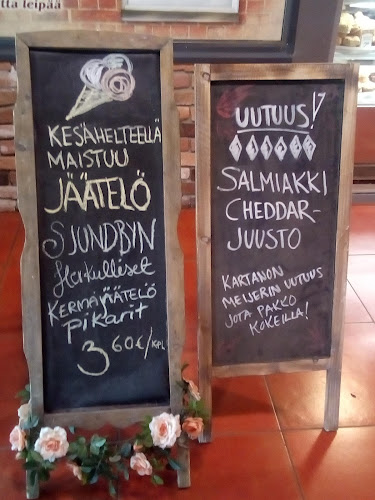 tta leipää
KESÄHELTEELLÄ
MAISTUU
JÄÄTELÖ
SJUNDBYN
Herkulliset
KERMAJÄÄTELÖ
Pikarit
3,60€/KPL
UUTUUS!
SALMIAKKI
CHEDDAR-
JUUSTO
KARTANON
MEIJERIN UUTUUS
JOTA PAKKO
KOKEILLA!